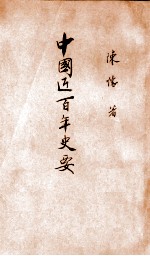 陳懷著
中國近百年史要